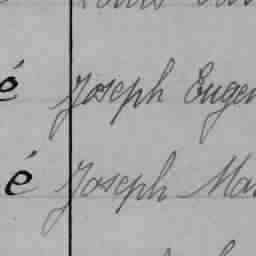 é Joseph Eugen
é Joseph Ma